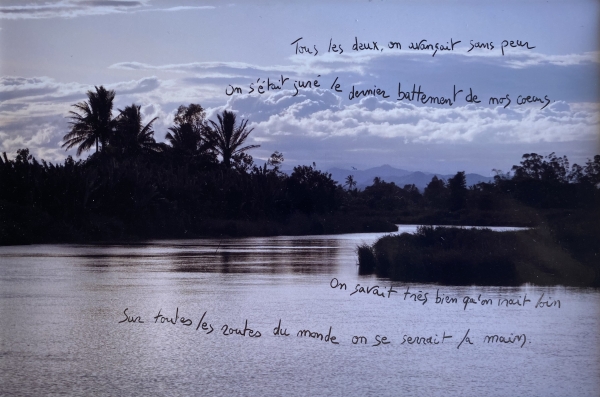 Tous les deux, on avançait sans peur
On s'était juré le dernier battement de nos coeurs
On savait très bien qu'on irait loin
Sur toutes les routes du monde on se serrait la main.